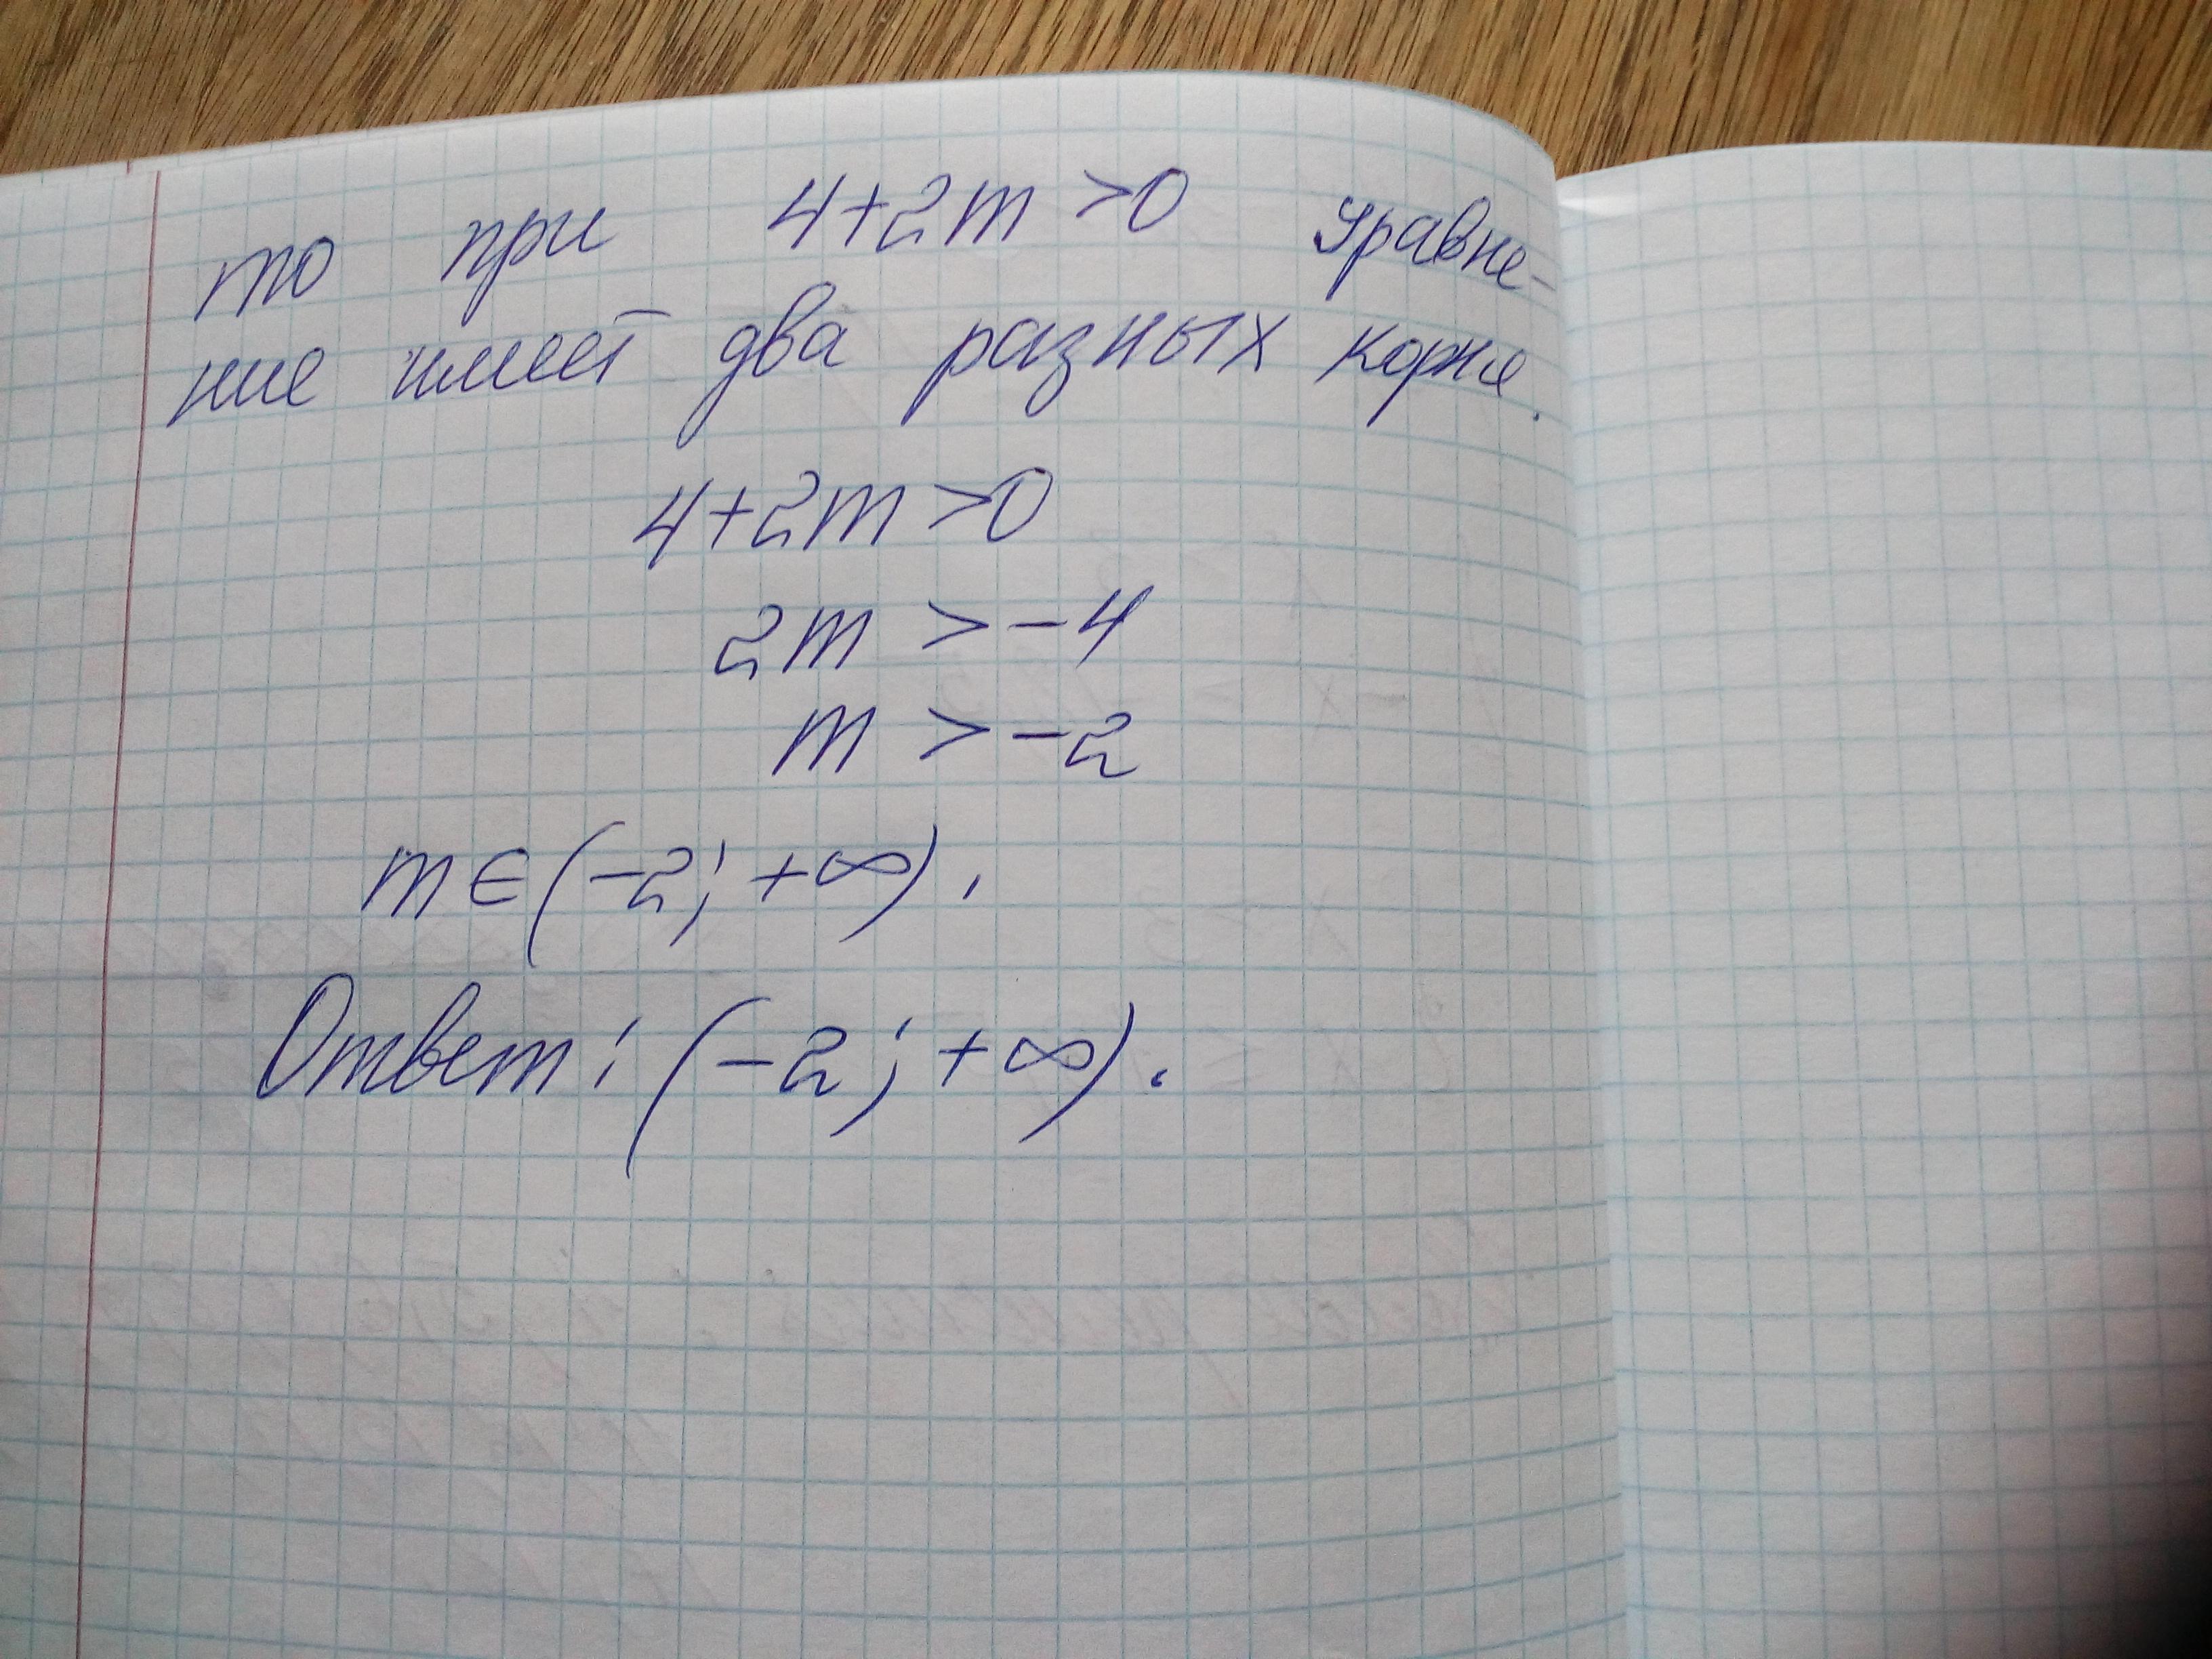 то при 4+2m >0 уравне-
ние имеет два разных корня.
4+2m >0
2m > -4
m > -2
m ∈ (-2; +∞).
Ответ: (-2; +∞).